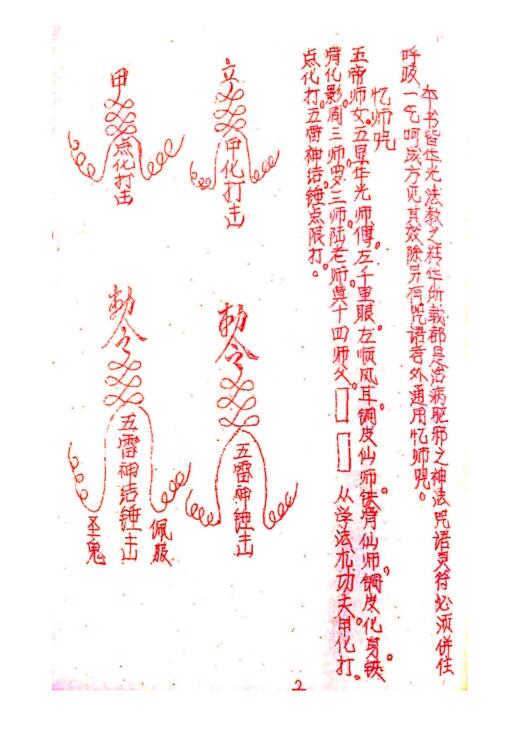 本书皆华光法教之精华所载都是治病驱邪之神法咒语灵符必须併住
呼吸一气呵成方见其效除另有咒语者外通用忆师咒。
忆师咒
五帝师女。五显华光师傅。左千里眼。左顺风耳。铜皮仙师。铁骨仙师。铜皮化身。铁
骨化影。周三师。罗三师。陆老师。莫十四师父。
从学法术功夫。甲化打。
点化打。五雷神结锤点限打。
立
甲化打击
甲
点化打击
勅令
五雷神锤击
勅令
五雷神结锤击
佩
圣鬼
2